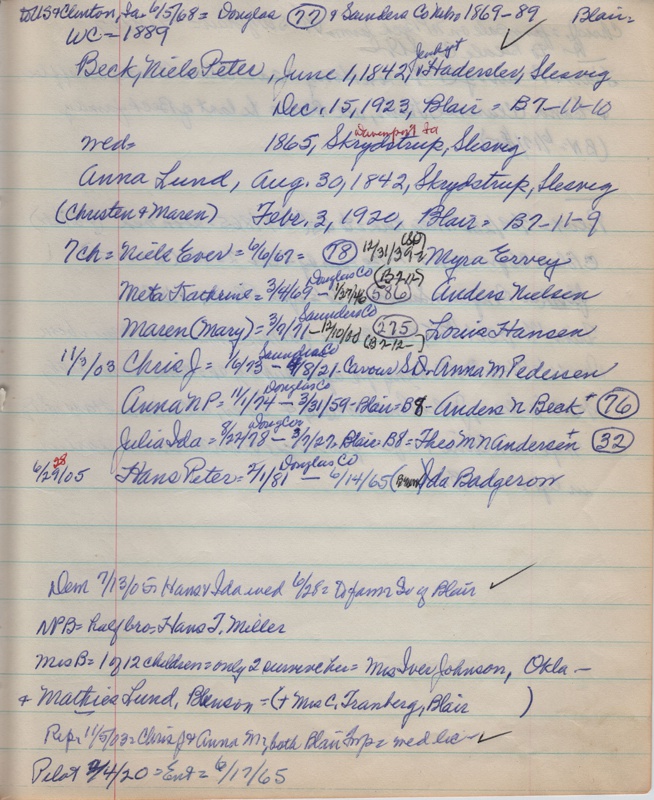 to US & Clinton, Ia. 6/5/68 = Douglas (77) & Saunders Co Nebr 1869-89 Blair=
WC = 1889
Beck, Niels Peter, June 1, 1842, Hadersler, Slesvig
Dec. 15, 1923, Blair = B7-11-10
med= 1865, Skrydstrup, Slesvig
Davenport Ia
Anna Lund, Aug. 30, 1842, Skrydstrup, Slesvig
(Christen & Maren) Febr. 3, 1920, Blair = B7-11-9
7 ch = Niels Ever = 6/6/67 = (78) 12/31/39 - Myra Ervey
Meta Kathrine = 3/4/69 - Douglas Co 1/27/46 (B7-12-) (586) Anders Nielsen
Maren (Mary) = 3/9/71 - Saunders Co 12/10/60 (B7-12-) (275) Louis Hansen
11/3/03 Chris J = 1/6/73 - Saunders Co /8/21 - Carour S.D. Anna M Pedersen
Anna N P = 11/1/74 - Douglas Co 3/31/59 - Blair = B8 - Anders N Beck + (76)
Julia Ida = 8/22/78 - Doug Co 3/7/27 - Blair B8 = Theo M N Andersen + (32)
6/29/05 28 Hans Peter = 2/1/81 - Douglas Co 6/14/65 Ida Badgerow
Dem 7/13/05 = Hans & Ida wed 6/28 = To farm So of Blair
NPB = half bro = Hans T. Miller
Mrs B = 1 of 12 children = only 2 survive her = Mrs Iver Johnson, Okla -
+ Mathies Lund, Blenson = (+ Mrs C. Tranberg, Blair )
Rep. 11/5/03 = Chris J & Anna M, both Blair Imp = med lic -
Pilot 2/4/20 = Ent = 6/17/65